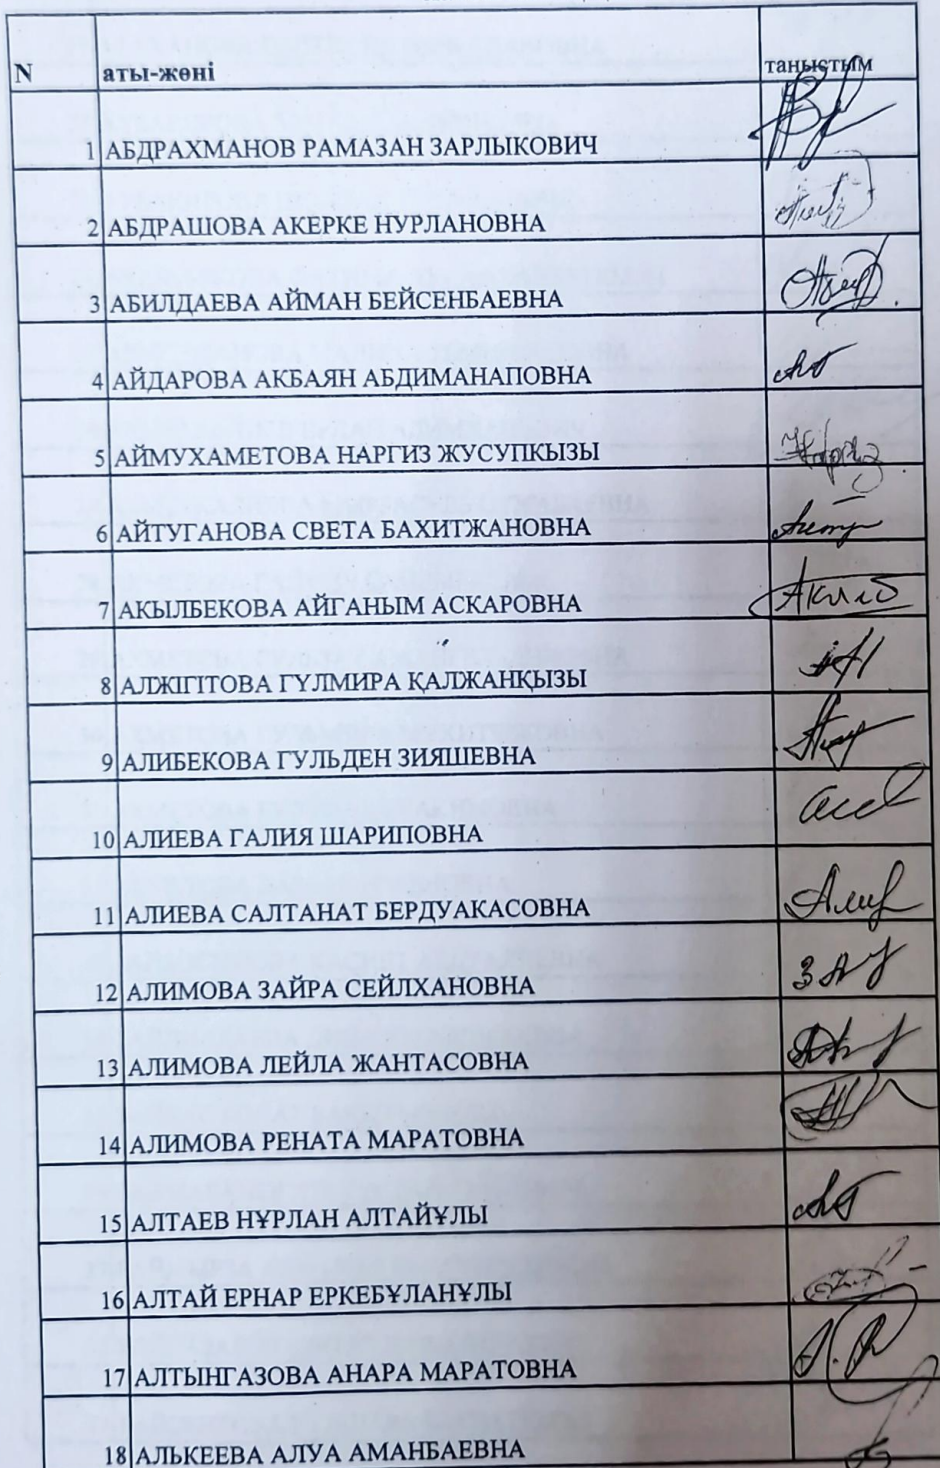 N аты-жөні таныстым
1 АБДРАХМАНОВ РАМАЗАН ЗАРЛЫКОВИЧ
2 АБДРАШОВА АКЕРКЕ НУРЛАНОВНА
3 АБИЛДАЕВА АЙМАН БЕЙСЕНБАЕВНА
4 АЙДАРОВА АКБАЯН АБДИМАНАПОВНА
5 АЙМУХАМЕТОВА НАРГИЗ ЖУСУПКЫЗЫ
6 АЙТУГАНОВА СВЕТА БАХИТЖАНОВНА
7 АКЫЛБЕКОВА АЙГАНЫМ АСКАРОВНА
8 АЛЖІГІТОВА ГҮЛМИРА ҚАЛЖАНҚЫЗЫ
9 АЛИБЕКОВА ГУЛЬДЕН ЗИЯШЕВНА
10 АЛИЕВА ГАЛИЯ ШАРИПОВНА
11 АЛИЕВА САЛТАНАТ БЕРДУАКАСОВНА
12 АЛИМОВА ЗАЙРА СЕЙЛХАНОВНА
13 АЛИМОВА ЛЕЙЛА ЖАНТАСОВНА
14 АЛИМОВА РЕНАТА МАРАТОВНА
15 АЛТАЕВ НҰРЛАН АЛТАЙҰЛЫ
16 АЛТАЙ ЕРНАР ЕРКЕБҰЛАНҰЛЫ
17 АЛТЫНГАЗОВА АНАРА МАРАТОВНА
18 АЛЬКЕЕВА АЛУА АМАНБАЕВНА